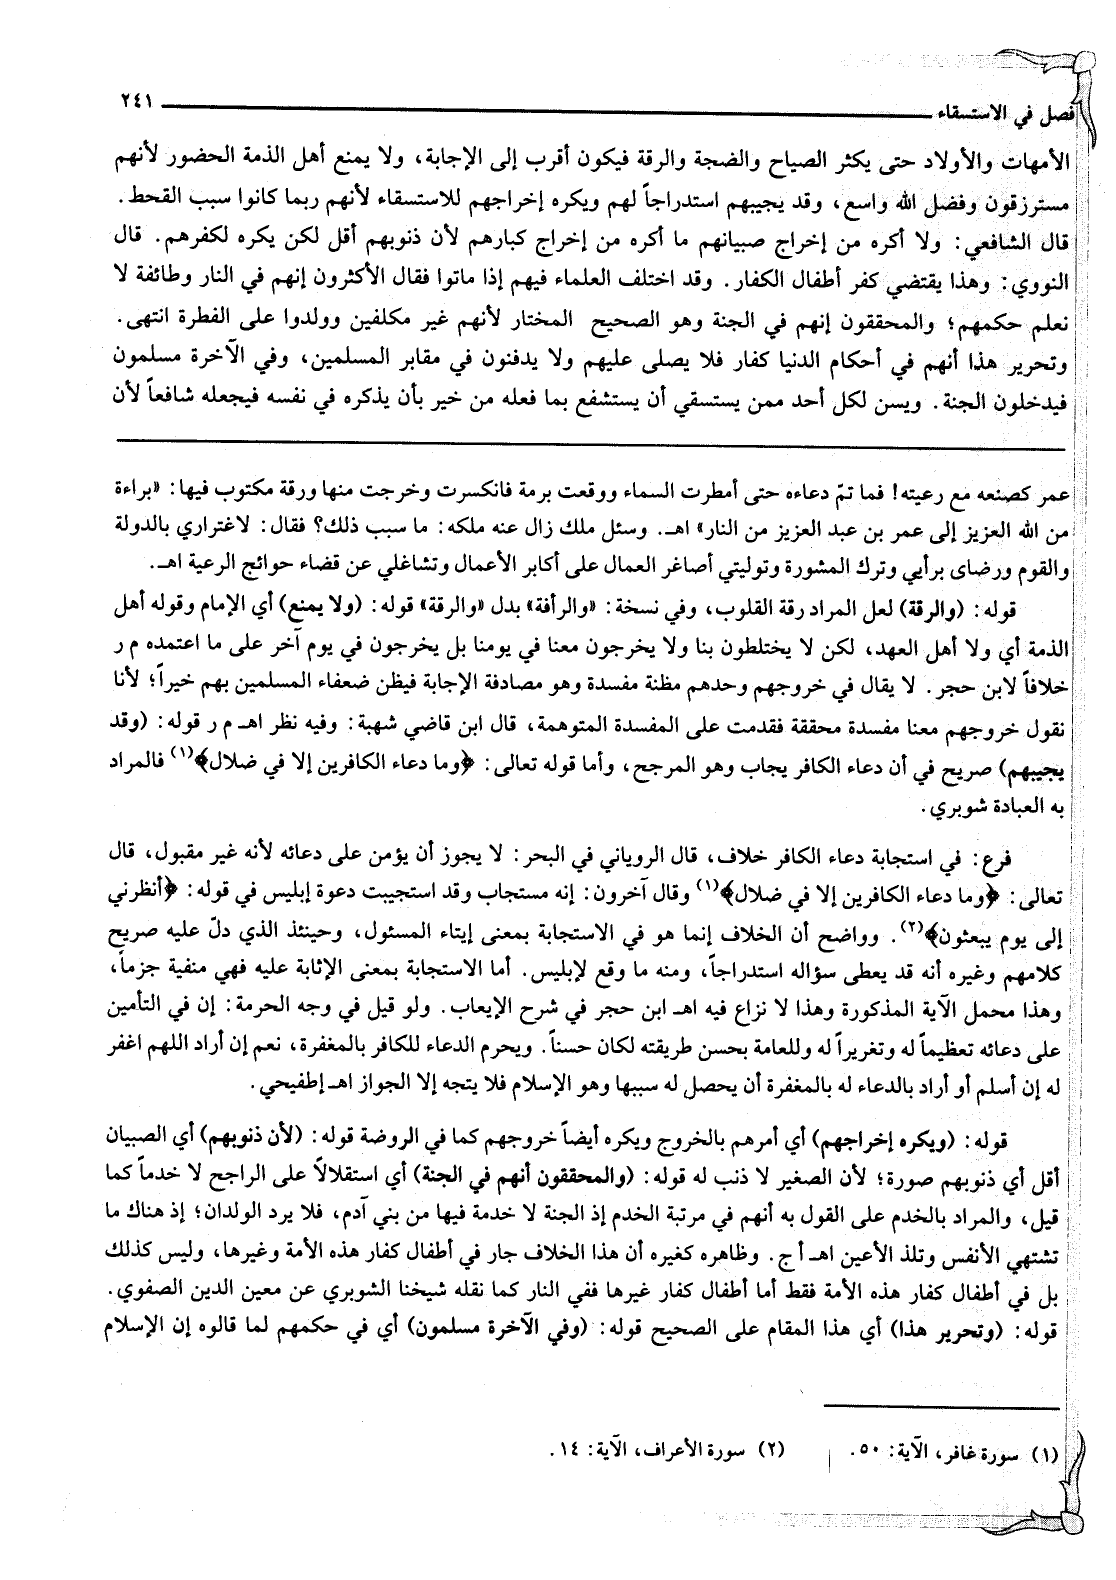 فصل في الاستسقاء ٢٤١
الأمهات والأولاد حتى يكثر الصياح والضجة والرقة فيكون أقرب إلى الإجابة، ولا يمنع أهل الذمة الحضور لأنهم
مسترزقون وفضل الله واسع، وقد يجيبهم استدراجاً لهم ويكره إخراجهم للاستسقاء لأنهم ربما كانوا سبب القحط.
قال الشافعي: ولا أكره من إخراج صبيانهم ما أكره من إخراج كبارهم لأن ذنوبهم أقل لكن يكره لكفرهم. قال
النووي: وهذا يقتضي كفر أطفال الكفار. وقد اختلف العلماء فيهم إذا ماتوا فقال الأكثرون إنهم في النار وطائفة لا
نعلم حكمهم؛ والمحققون إنهم في الجنة وهو الصحيح المختار لأنهم غير مكلفين وولدوا على الفطرة انتهى.
وتحرير هذا أنهم في أحكام الدنيا كفار فلا يصلى عليهم ولا يدفنون في مقابر المسلمين، وفي الآخرة مسلمون
فيدخلون الجنة. ويسن لكل أحد ممن يستسقي أن يستشفع بما فعله من خير بأن يذكره في نفسه فيجعله شافعاً لأن
عمر كصنعه مع رعيته! فما تمّ دعاءه حتى أمطرت السماء ووقعت برمة فانكسرت وخرجت منها ورقة مكتوب فيها: «براءة
من الله العزيز إلى عمر بن عبد العزيز من النار» اهـ. وسئل ملك زال عنه ملكه: ما سبب ذلك؟ فقال: لاغتراري بالدولة
والقوم ورضاى برأيي وترك المشورة وتوليتي أصاغر العمال على أكابر الأعمال وتشاغلي عن قضاء حوائج الرعية اهـ.
قوله: (والرقة) لعل المراد رقة القلوب، وفي نسخة: «والرأفة» بدل «والرقة» قوله: (ولا يمنع) أي الإمام وقوله أهل
الذمة أي ولا أهل العهد، لكن لا يختلطون بنا ولا يخرجون معنا في يومنا بل يخرجون في يوم آخر على ما اعتمده م ر
خلافاً لابن حجر. لا يقال في خروجهم وحدهم مظنة مفسدة وهو مصادفة الإجابة فيظن ضعفاء المسلمين بهم خيراً؛ لأنا
نقول خروجهم معنا مفسدة محققة فقدمت على المفسدة المتوهمة، قال ابن قاضي شهبة: وفيه نظر اهـ م ر قوله: (وقد
يجيبهم) صريح في أن دعاء الكافر يجاب وهو المرجح، وأما قوله تعالى: ﴿وما دعاء الكافرين إلا في ضلال﴾(١) فالمراد
به العبادة شوبري.
فرع: في استجابة دعاء الكافر خلاف، قال الروياني في البحر: لا يجوز أن يؤمن على دعائه لأنه غير مقبول، قال
تعالى: ﴿وما دعاء الكافرين إلا في ضلال﴾(١) وقال آخرون: إنه مستجاب وقد استجيبت دعوة إبليس في قوله: ﴿أنظرني
إلى يوم يبعثون﴾(٢). وواضح أن الخلاف إنما هو في الاستجابة بمعنى إيتاء المسئول، وحينئذ الذي دلّ عليه صريح
كلامهم وغيره أنه قد يعطى سؤاله استدراجاً، ومنه ما وقع لإبليس. أما الاستجابة بمعنى الإثابة عليه فهي منفية جزماً،
وهذا محمل الآية المذكورة وهذا لا نزاع فيه اهـ ابن حجر في شرح الإيعاب. ولو قيل في وجه الحرمة: إن في التأمين
على دعائه تعظيماً له وتغريراً له وللعامة بحسن طريقته لكان حسناً. ويحرم الدعاء للكافر بالمغفرة، نعم إن أراد اللهم اغفر
له إن أسلم أو أراد بالدعاء له بالمغفرة أن يحصل له سببها وهو الإسلام فلا يتجه إلا الجواز اهـ إطفيحي.
قوله: (ويكره إخراجهم) أي أمرهم بالخروج ويكره أيضاً خروجهم كما في الروضة قوله: (لأن ذنوبهم) أي الصبيان
أقل أي ذنوبهم صورة؛ لأن الصغير لا ذنب له قوله: (والمحققون أنهم في الجنة) أي استقلالاً على الراجح لا خدماً كما
قيل، والمراد بالخدم على القول به أنهم في مرتبة الخدم إذ الجنة لا خدمة فيها من بني آدم، فلا يرد الولدان؛ إذ هناك ما
تشتهي الأنفس وتلذ الأعين اهـ أ ج. وظاهره كغيره أن هذا الخلاف جار في أطفال كفار هذه الأمة وغيرها، وليس كذلك
بل في أطفال كفار هذه الأمة فقط أما أطفال كفار غيرها ففي النار كما نقله شيخنا الشوبري عن معين الدين الصفوي.
قوله: (وتحرير هذا) أي هذا المقام على الصحيح قوله: (وفي الآخرة مسلمون) أي في حكمهم لما قالوه إن الإسلام
(١) سورة غافر، الآية: ٥٠. (٢) سورة الأعراف، الآية: ١٤.